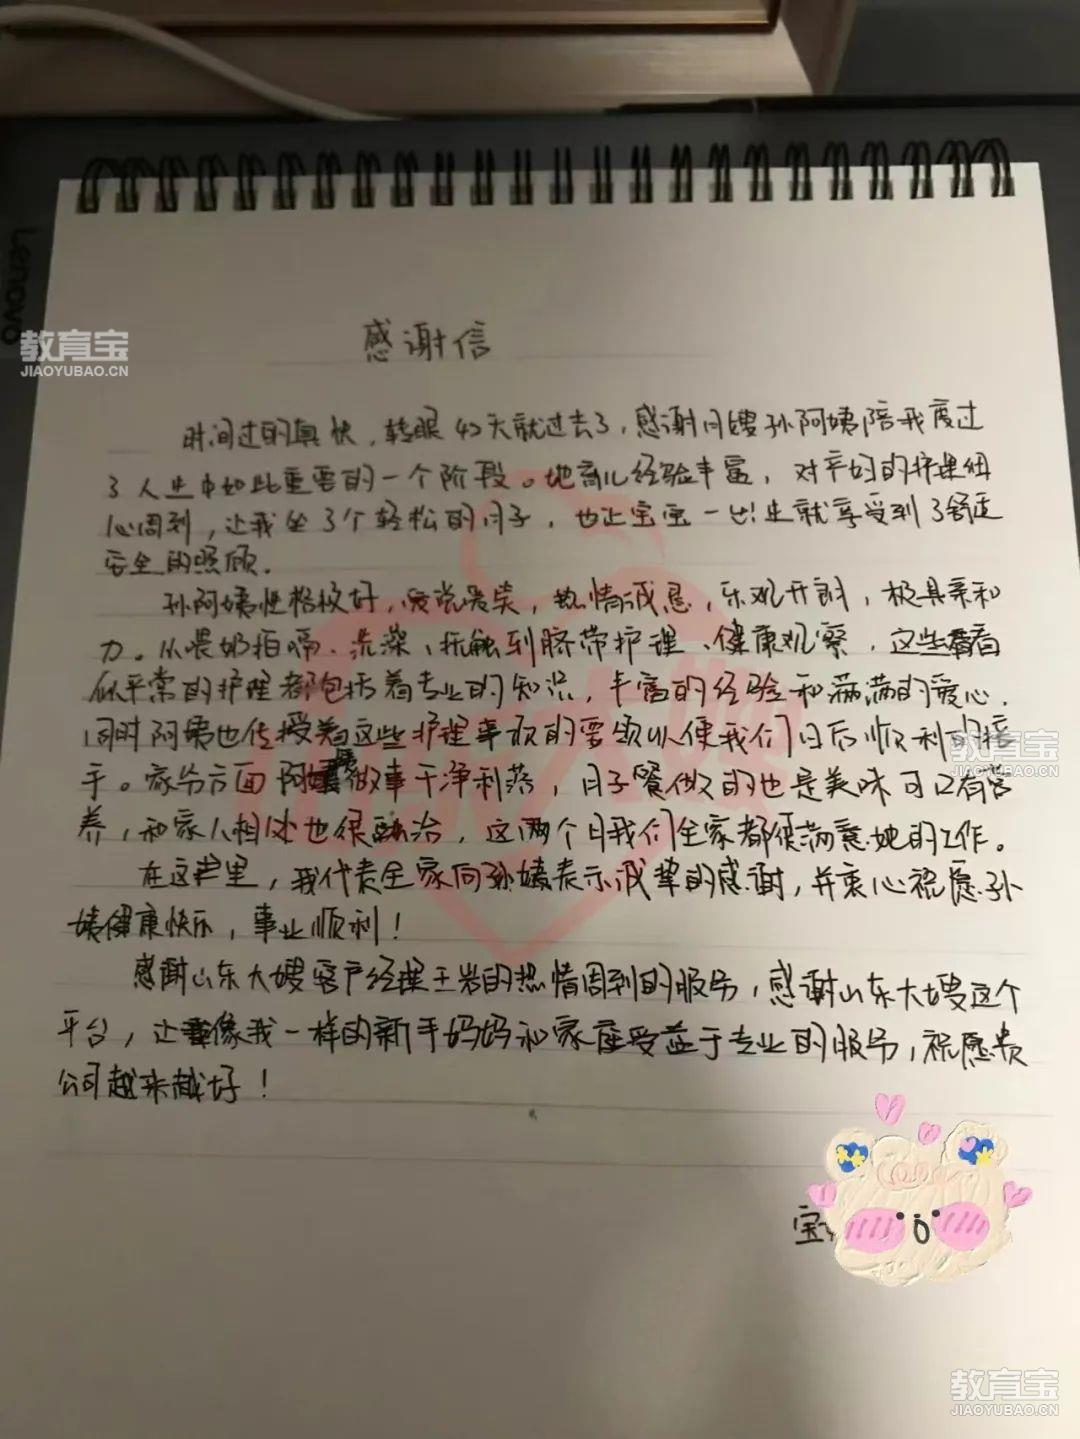 Lenovo
教育宝
JIAOYUBAO.CN
感谢信
时间过的真快，转眼42天就过去了，感谢月嫂孙阿姨陪我度过
了人生中如此重要的一个阶段。她育儿经验丰富，对产妇的护理细
心周到，让我坐了个轻松的月子，也让宝宝一出生就享受到了舒适
安全的照顾。
孙阿姨性格极好，爱说爱笑，热情诚恳，乐观开朗，极具亲和
力。从喂奶拍嗝、洗澡、抚触到脐带护理、健康观察，这些看
似平常的护理都包括着专业的知识，丰富的经验和满满的爱心，
同时阿姨也传授着这些护理事项的要领以便我们日后顺利的接
手。家务方面阿姨做事干净利落，月子餐做的也是美味可口有营
养，和家人相处也很融洽，这两个月我们全家都很满意她的工作。
在这里，我代表全家向孙姨表示诚挚的感谢，并衷心祝愿孙
姨健康快乐，事业顺利！
感谢山东大嫂客户经理王岩的热情周到的服务，感谢山东大嫂这个
平台，让像我一样的新手妈妈和家庭受益于专业的服务，祝愿贵
公司越来越好！
宝
教育宝
JIAOYUBAO.CN
教育宝
JIAOYUBAO.CN